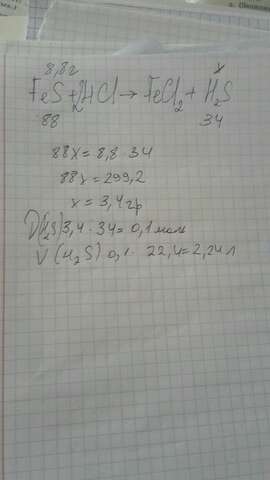 8,8г x
FeS+2HCl→FeCl2+H2S
88 34
88x=8,8·34
88x=299,2
x=3,4гр
ν(H2S)3,4·34=0,1моль
V(H2S)0,1·22,4=2,24л